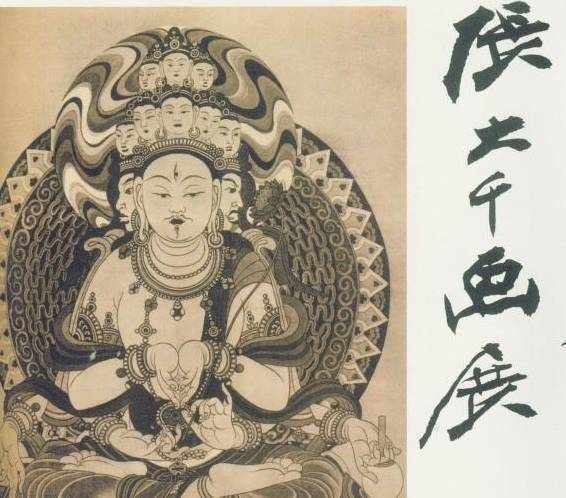 張大千画展